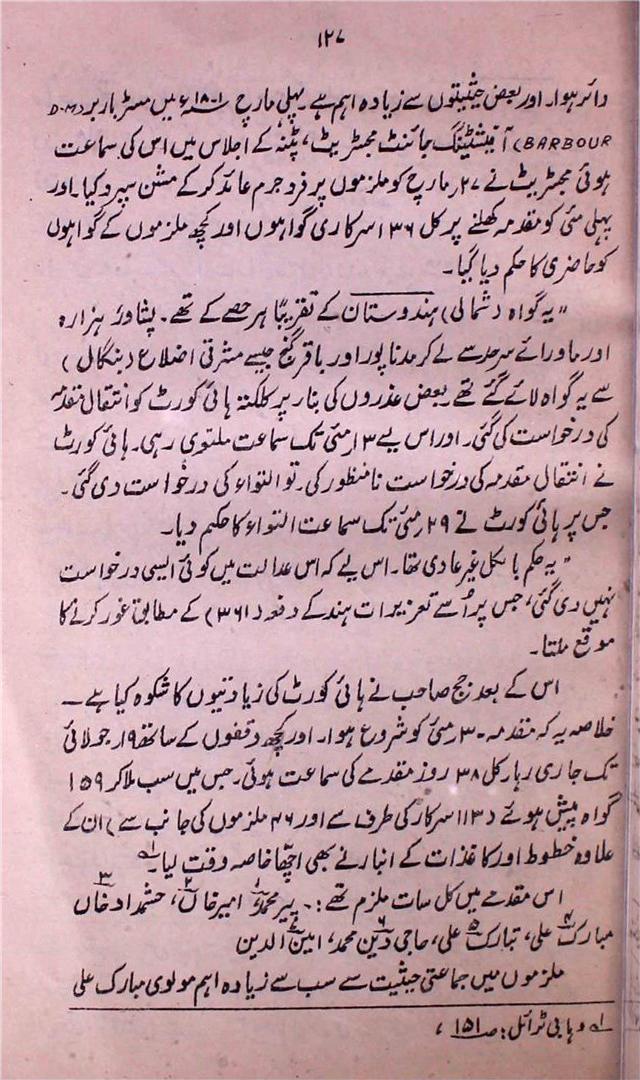 ۱۲۷
دائر ہوا۔ اور بعض حیثیتوں سے زیادہ اہم ہے۔ پہلی مارچ ۱۸۷۱ء میں مسٹر باربر (D.M
BARBOUR) آفیشٹینگ جائنٹ مجسٹریٹ، پٹنہ کے اجلاس میں اس کی سماعت
ہوئی مجسٹریٹ نے ۲۷ مارچ کو ملزموں پر فرد جرم عائد کر کے سشن سپرد کیا۔ اور
پہلی مئی کو مقدمہ کھلنے پر کل ۱۳۶ سرکاری گواہوں اور کچھ ملزموں کے گواہوں
کو حاضری کا حکم دیا گیا۔
"یہ گواہ (شمالی) ہندوستان کے تقریباً ہر حصے کے تھے۔ پشاور ہزارہ
اور ماورائے سرحد سے لے کر مدنا پور اور باقر گنج جیسے مشرقی اضلاع (بنگال)
سے یہ گواہ لائے گئے تھے بعض عذروں کی بنا پر کلکتہ ہائی کورٹ کو انتقال مقدمہ
کی درخواست کی گئی۔ اور اس لیے ۱۳ مئی تک سماعت ملتوی رہی۔ ہائی کورٹ
نے انتقال مقدمہ کی درخواست نامنظور کی۔ تو التواء کی درخواست دی گئی۔
جس پر ہائی کورٹ نے ۲۹ مئی تک سماعت التواء کا حکم دیا۔
"یہ حکم بالکل غیر عادی تھا۔ اس لیے کہ اس عدالت میں کوئی ایسی درخواست
نہیں دی گئی، جس پر اُسے تعزیرات ہند کے دفعہ (۳۶۱) کے مطابق غور کرنے کا
موقع ملتا۔
اس کے بعد جج صاحب نے ہائی کورٹ کی زیادتیوں کا شکوہ کیا ہے۔
خلاصہ یہ کہ مقدمہ ۳۰ مئی کو شروع ہوا۔ اور کچھ وقفوں کے ساتھ ۱۹ جولائی
تک جاری رہا۔ کل ۳۸ روز مقدمے کی سماعت ہوئی۔ جس میں سب ملا کر ۱۵۹
گواہ پیش ہوئے (۱۱۳ سرکار کی طرف سے اور ۴۶ ملزموں کی جانب سے) ان کے
علاوہ خطوط اور کاغذات کے انبار نے بھی اچھا خاصہ وقت لیا۔ لہ
اس مقدمے میں کل سات ملزم تھے:۔ پیر محمد۱ امیر خاں۲، حشمداد خاں۳
مبارک۴ علی، تبارک۵ علی، حاجی دین۶ محمد، امین۷ الدین
ملزموں میں جماعتی حیثیت سے سب سے زیادہ اہم مولوی مبارک علی
لہ وہابی ٹرائل: ص۱۵۱،